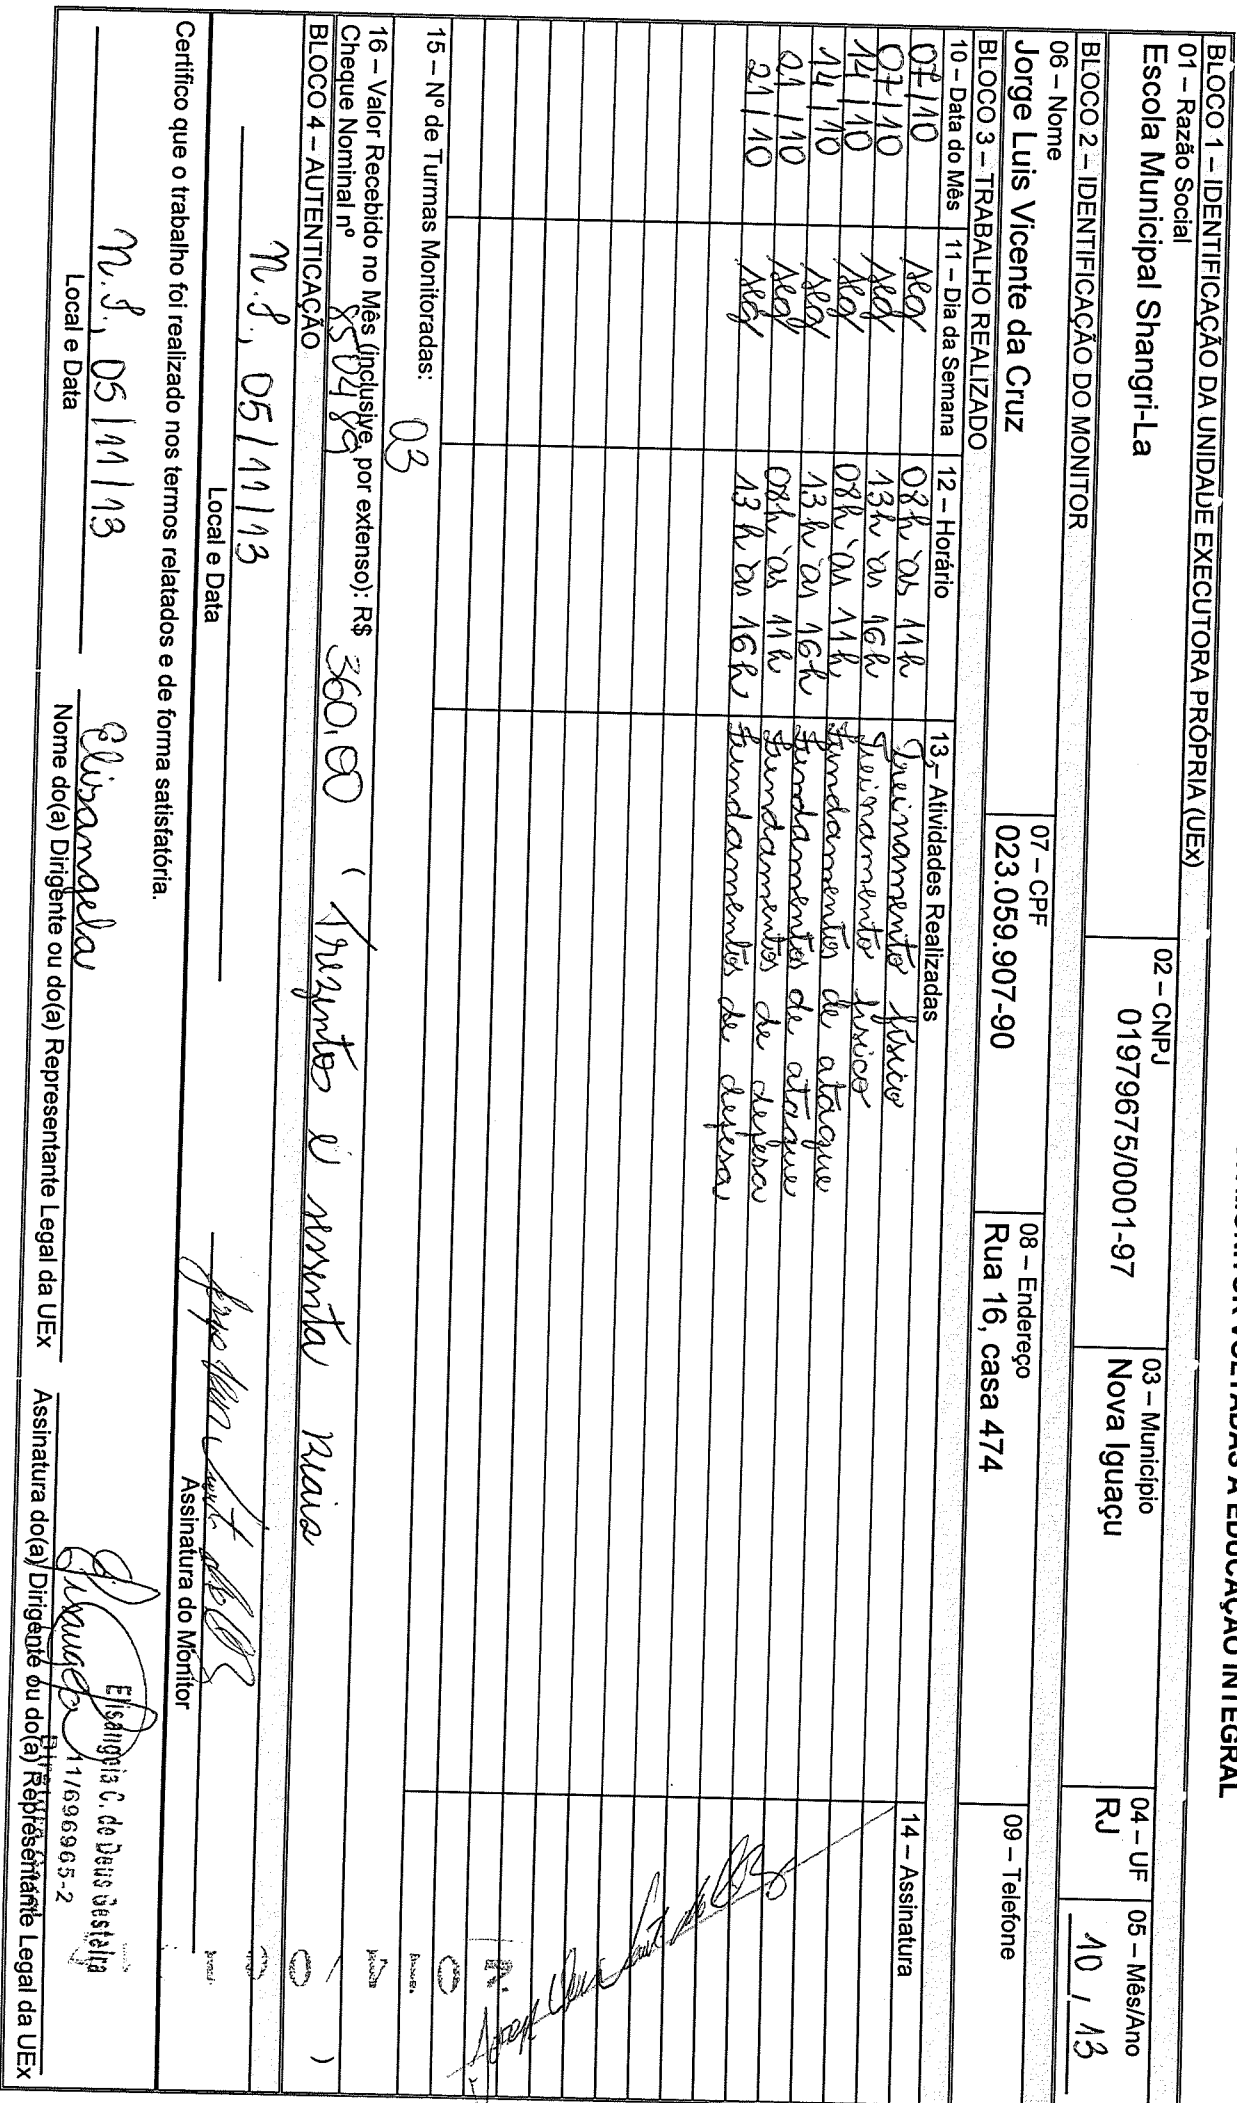 MONITOR VOLTADAS À EDUCAÇÃO INTEGRAL
BLOCO 1 – IDENTIFICAÇÃO DA UNIDADE EXECUTORA PRÓPRIA (UEx)
01 – Razão Social
Escola Municipal Shangri-La
02 – CNPJ
01979675/0001-97
03 – Município
Nova Iguaçu
04 – UF
RJ
05 – Mês/Ano
10 / 13
BLOCO 2 – IDENTIFICAÇÃO DO MONITOR
06 – Nome
Jorge Luis Vicente da Cruz
07 – CPF
023.059.907-90
08 – Endereço
Rua 16, casa 474
09 – Telefone
BLOCO 3 – TRABALHO REALIZADO
10 – Data do Mês 11 – Dia da Semana 12 – Horário 13 – Atividades Realizadas 14 – Assinatura
07/10 seg 08h às 11h Treinamento físico
07/10 seg 13h às 16h Treinamento físico
14/10 seg 08h às 11h Fundamentos de ataque
14/10 seg 13h às 16h Fundamentos de ataque
21/10 seg 08h às 11h Fundamentos de defesa
21/10 seg 13h às 16h Fundamentos de defesa
15 – Nº de Turmas Monitoradas: 03
16 – Valor Recebido no Mês (inclusive, por extenso): R$ 360,00 ( Trezentos e sessenta reais )
Cheque Nominal nº 850489
BLOCO 4 – AUTENTICAÇÃO
N.I., 05/11/13
Local e Data
Assinatura do Monitor
Certifico que o trabalho foi realizado nos termos relatados e de forma satisfatória.
N.I., 05/11/13
Local e Data
Elisangela
Nome do(a) Dirigente ou do(a) Representante Legal da UEx
Elisangela
Elisangela C. de Deus
11/696965-2
Assinatura do(a) Dirigente ou do(a) Representante Legal da UEx